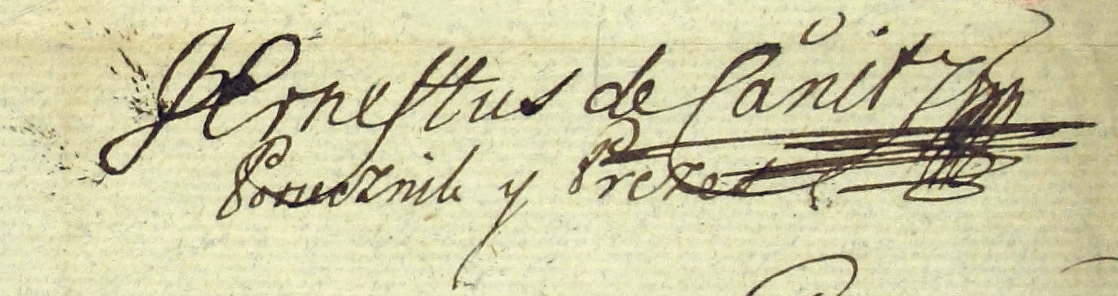 Ernestus de Canitz
Porucznik y Prezes